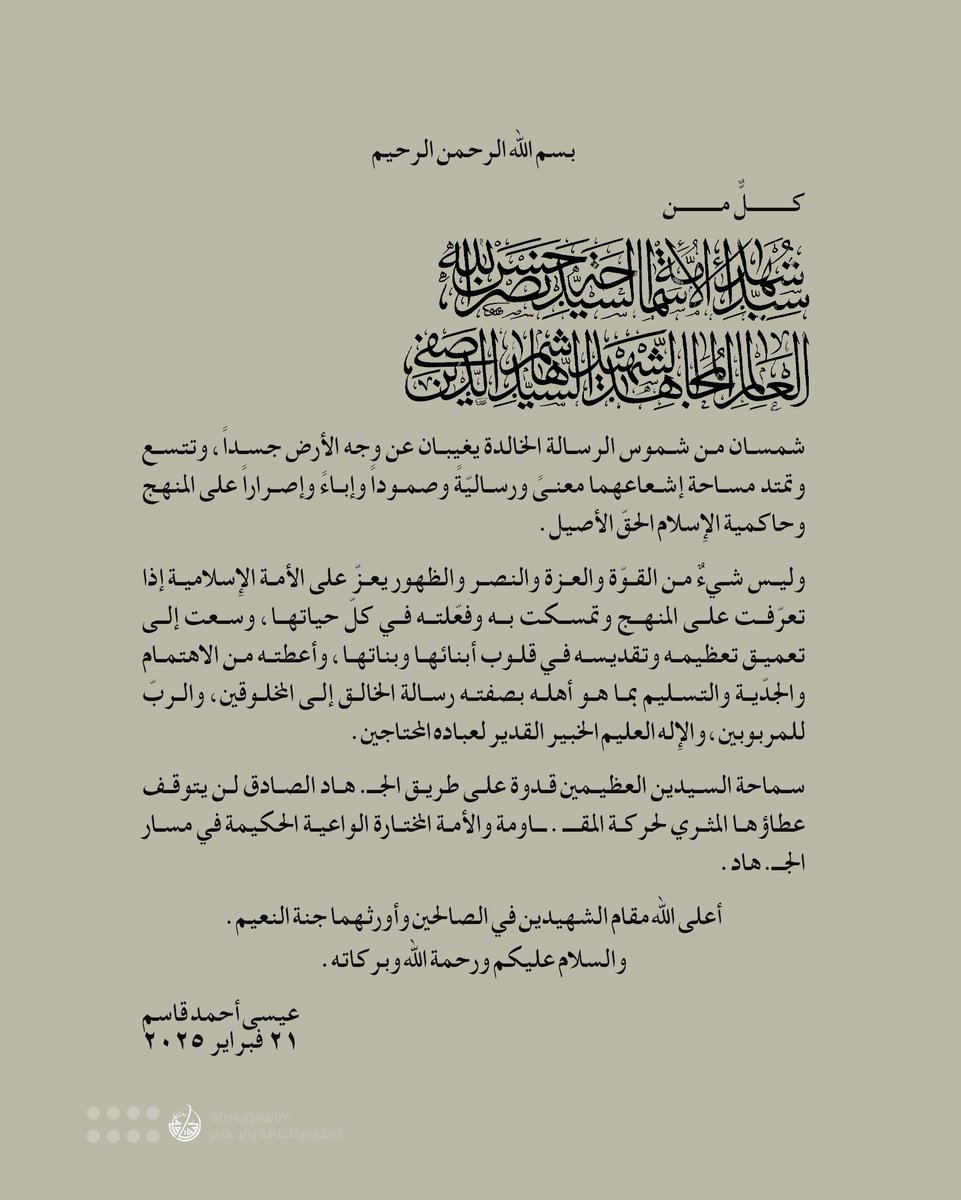 بسم الله الرحمن الرحيم
كـــلٌّ مـــن
سيد شهداء الأمة سماحة السيد حسن نصر الله
العالم المجاهد الشهيد السيد هاشم صفي الدين
شمسان من شموس الرسالة الخالدة يغيبان عن وجه الأرض جسداً، وتتسع
وتمتد مساحة إشعاعهما معنىً ورساليّةً وصموداً وإباءً وإصراراً على المنهج
وحاكمية الإسلام الحقّ الأصيل.
وليس شيءٌ من القوّة والعزة والنصر والظهور يعزّ على الأمة الإسلامية إذا
تعرّفت على المنهج وتمسكت به وفعّلته في كلّ حياتها، وسعت إلى
تعميق تعظيمه وتقديسه في قلوب أبنائها وبناتها، وأعطته من الاهتمام
والجدّية والتسليم بما هو أهله بصفته رسالة الخالق إلى المخلوقين، والربّ
للمربوبين، والإله العليم الخبير القدير لعباده المحتاجين.
سماحة السيدين العظيمين قدوة على طريق الجـ.هاد الصادق لن يتوقف
عطاؤها المثري لحركة المقــ.ـاومة والأمة المختارة الواعية الحكيمة في مسار
الجـ.هاد.
أعلى الله مقام الشهيدين في الصالحين وأورثهما جنة النعيم.
والسلام عليكم ورحمة الله وبركاته.
عيسى أحمد قاسم
٢١ فبراير ٢٠٢٥
almuqawim
المقاوم للثقافة والإعلام